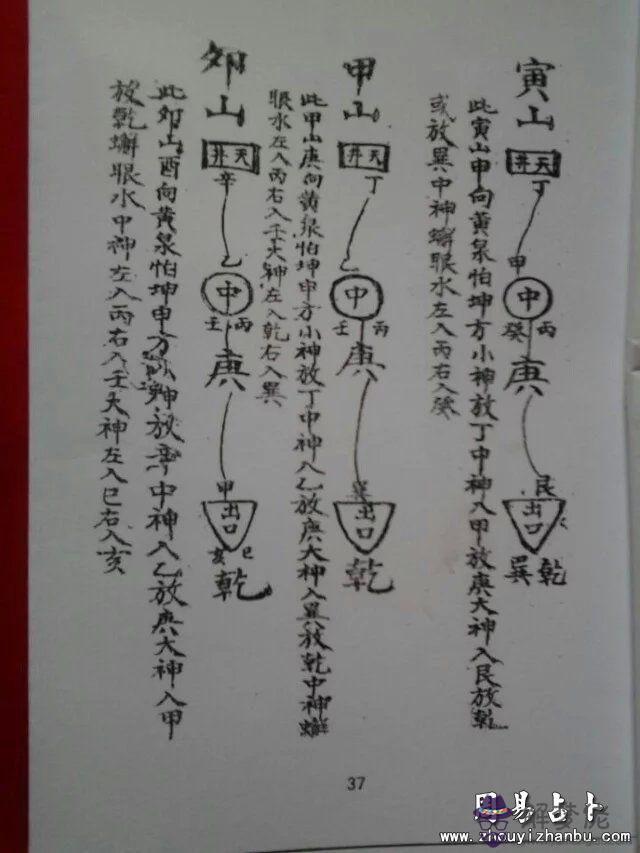 寅山
天井
丁
甲
中
癸 丙
庚
艮
出口
巽 乾
此寅山申向黄泉怕坤方小神放丁中神入甲放庚大神入艮放乾
或放巽中神蠏眼水左入丙右入癸
甲山
天井
丁
乙
中
壬 丙
庚
巽
出口
乾
此甲山庚向黄泉怕坤申方小神放丁中神入乙放庚大神入巽放乾中神蠏
眼水左入丙右入壬大神左入乾右入巽
夘山
天井
辛
乙
中
壬 丙
庚
甲
出口
亥 巳
乾
此夘山酉向黄泉怕坤申方小神放辛中神入乙放庚大神入甲
放乾蠏眼水中神左入丙右入壬大神左入巳右入亥
37
周易占卜
解梦佬
www.zhouyizhanbu.com